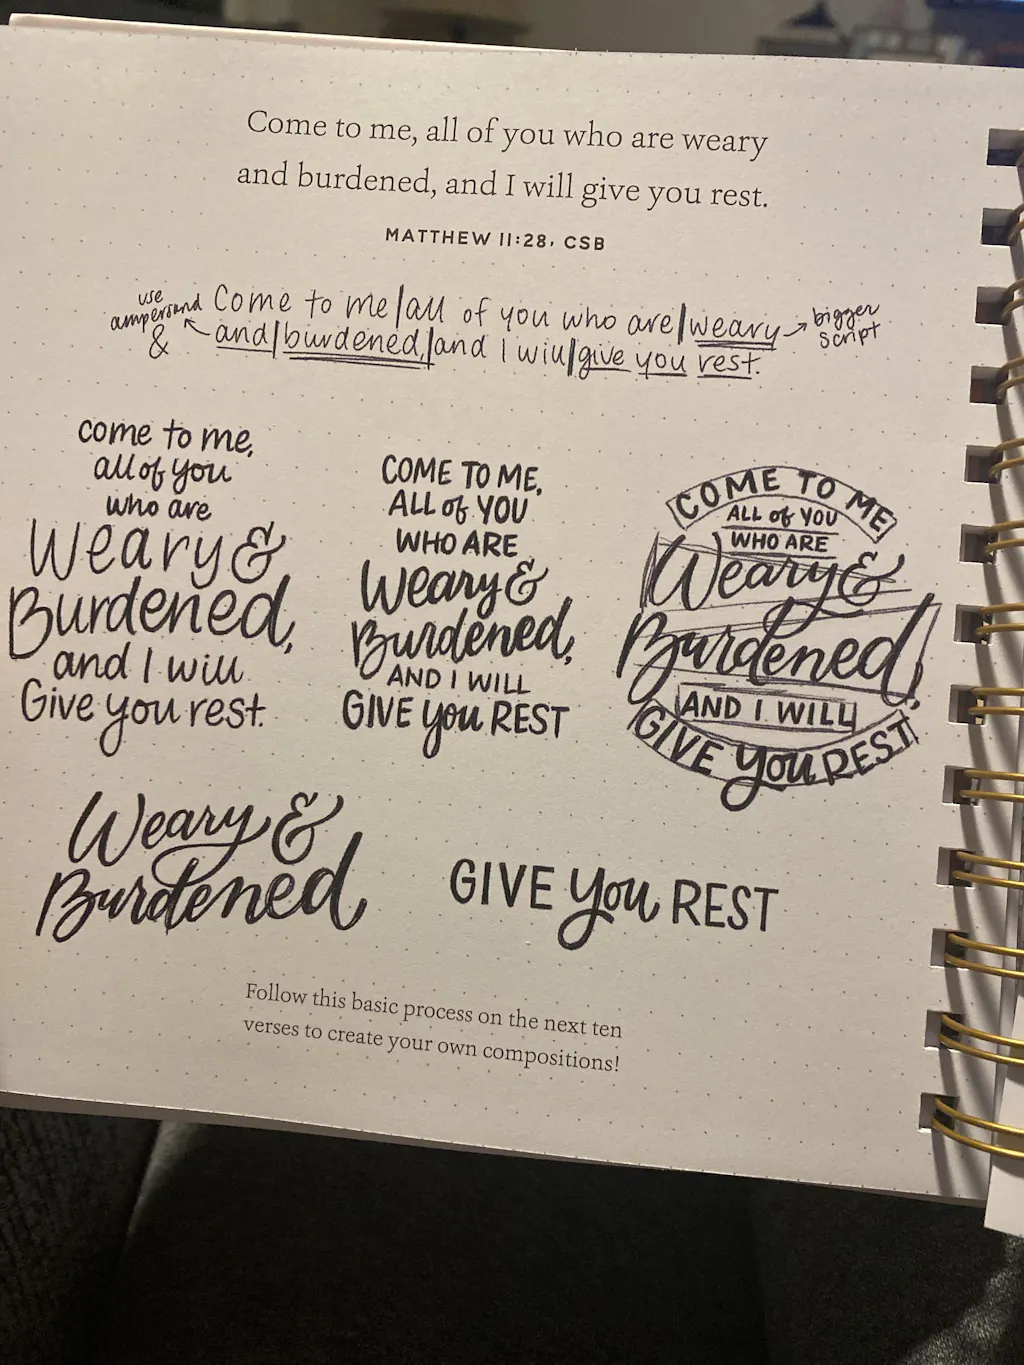 Come to me, all of you who are weary
and burdened, and I will give you rest.
MATTHEW 11:28, CSB
use
ampersand
&
Come to me|all of you who are|weary
and|burdened,|and I will|give you rest.
bigger
script
come to me,
all of you
who are
Weary &
Burdened,
and I will
Give you rest.
COME TO ME,
ALL of YOU
WHO ARE
Weary &
Burdened,
AND I WILL
GIVE you REST
COME TO ME
ALL of YOU
WHO ARE
Weary &
Burdened,
AND I WILL
GIVE you REST
Weary &
Burdened
GIVE you REST
Follow this basic process on the next ten
verses to create your own compositions!